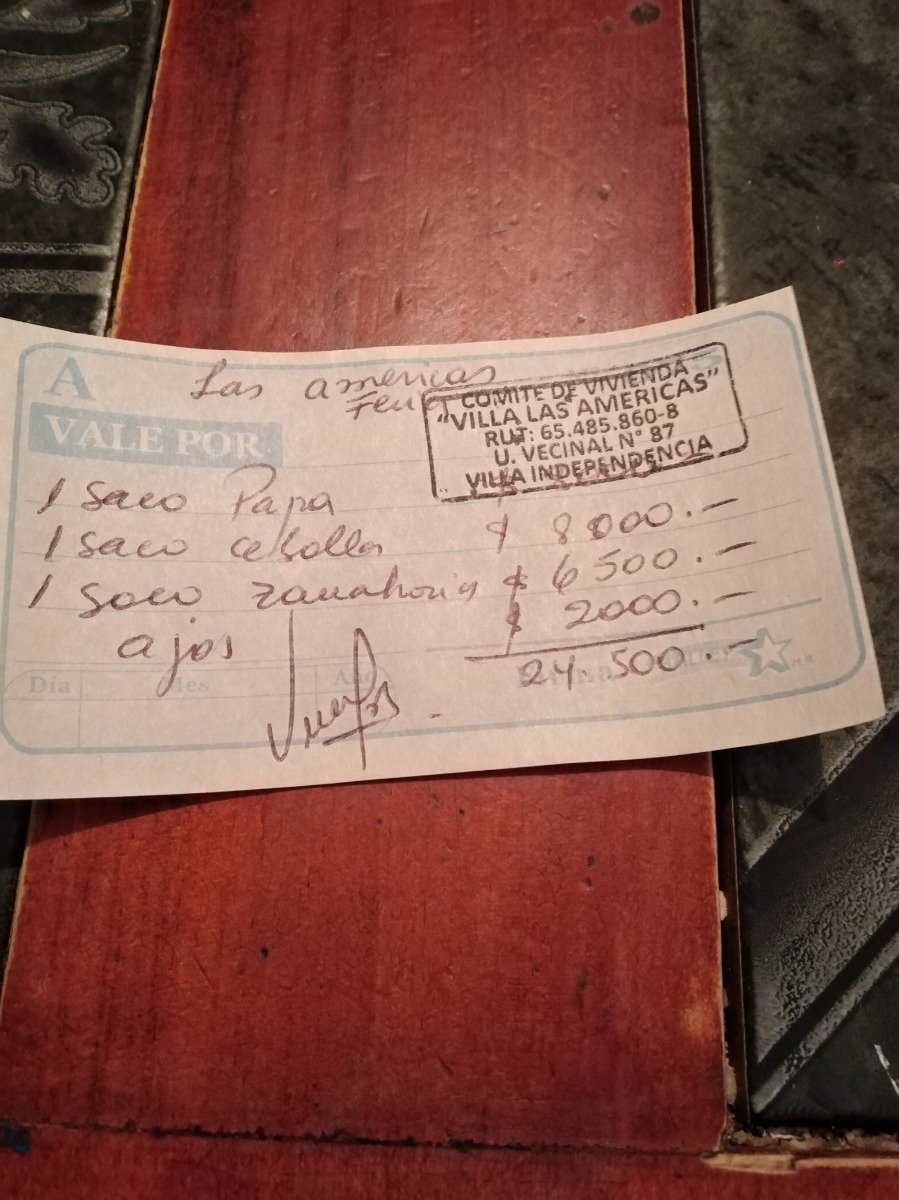 A
Las americas
VALE POR
COMITE DE VIVIENDA
"VILLA LAS AMERICAS"
RUT: 65.485.860-8
U. VECINAL N° 87
VILLA INDEPENDENCIA
1 saco Papa
1 saco cebolla $ 8000.-
1 saco zanahoria $ 6500.-
ajos $ 2000.-
24.500.-
Día Mes Año